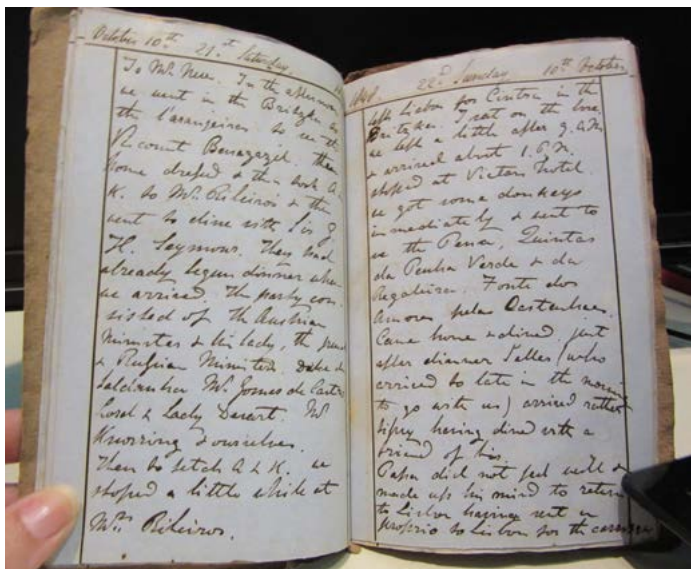 October 10th 21st Saturday.
To Mrs New. In the afternoon
we went in the Britzka to
the Larangeiras to see the
Viscount Benagazil. then
home dressed & then took A &
K. to Mrs Ribeiros & then
went to dine with Sir G
H. Seymour. They had
already begun dinner when
we arrived. The party con-
sisted of the Austrian
Minister & his lady, the
& Russian Minister. Duke de
Saldanha Mr Gomes de Castro
Lord & Lady Desart. Mr
Knorring & ourselves.
Then to fetch A & K. we
stoped a little while at
Mrs Ribeiros.
1848 22d Sunday 10th October
left Lisbon for Cintra in the
Britzka. I sat on the box.
we left a little after 9. A.M.
& arrived about 1. P.M.
stoped at Victors Hotel.
we got some donkeys
immediately & went to
see the Pena, Quintas
da Penha Verde & da
Regaleira. Fonte dos
Amores pelos Castanhaes.
Came home & dined. just
after dinner Saller (who
arrived to late in the morning
to go with us) arrived rather
tipsy having dined with a
friend of his.
Papa did not feel well &
made up his mind to return
to Lisbon having sent a
proprio to Lisbon for the carriage